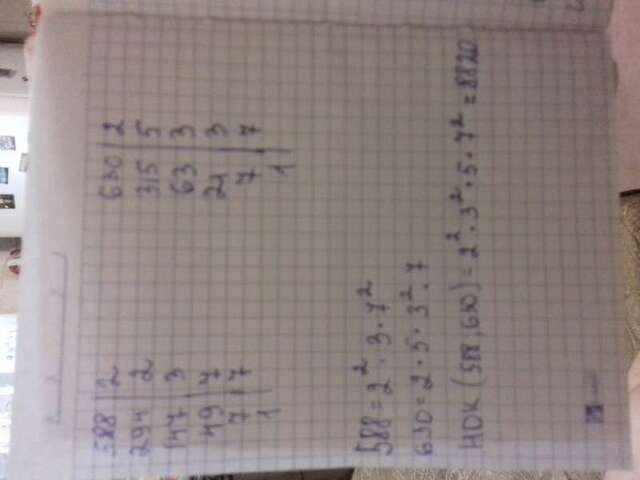 588 | 2
294 | 2
147 | 3
49 | 7
7 | 7
1
630 | 2
315 | 5
63 | 3
21 | 3
7 | 7
1
588 = 2² · 3 · 7²
630 = 2 · 5 · 3² · 7
НОК (588; 630) = 2² · 3² · 5 · 7² = 8820